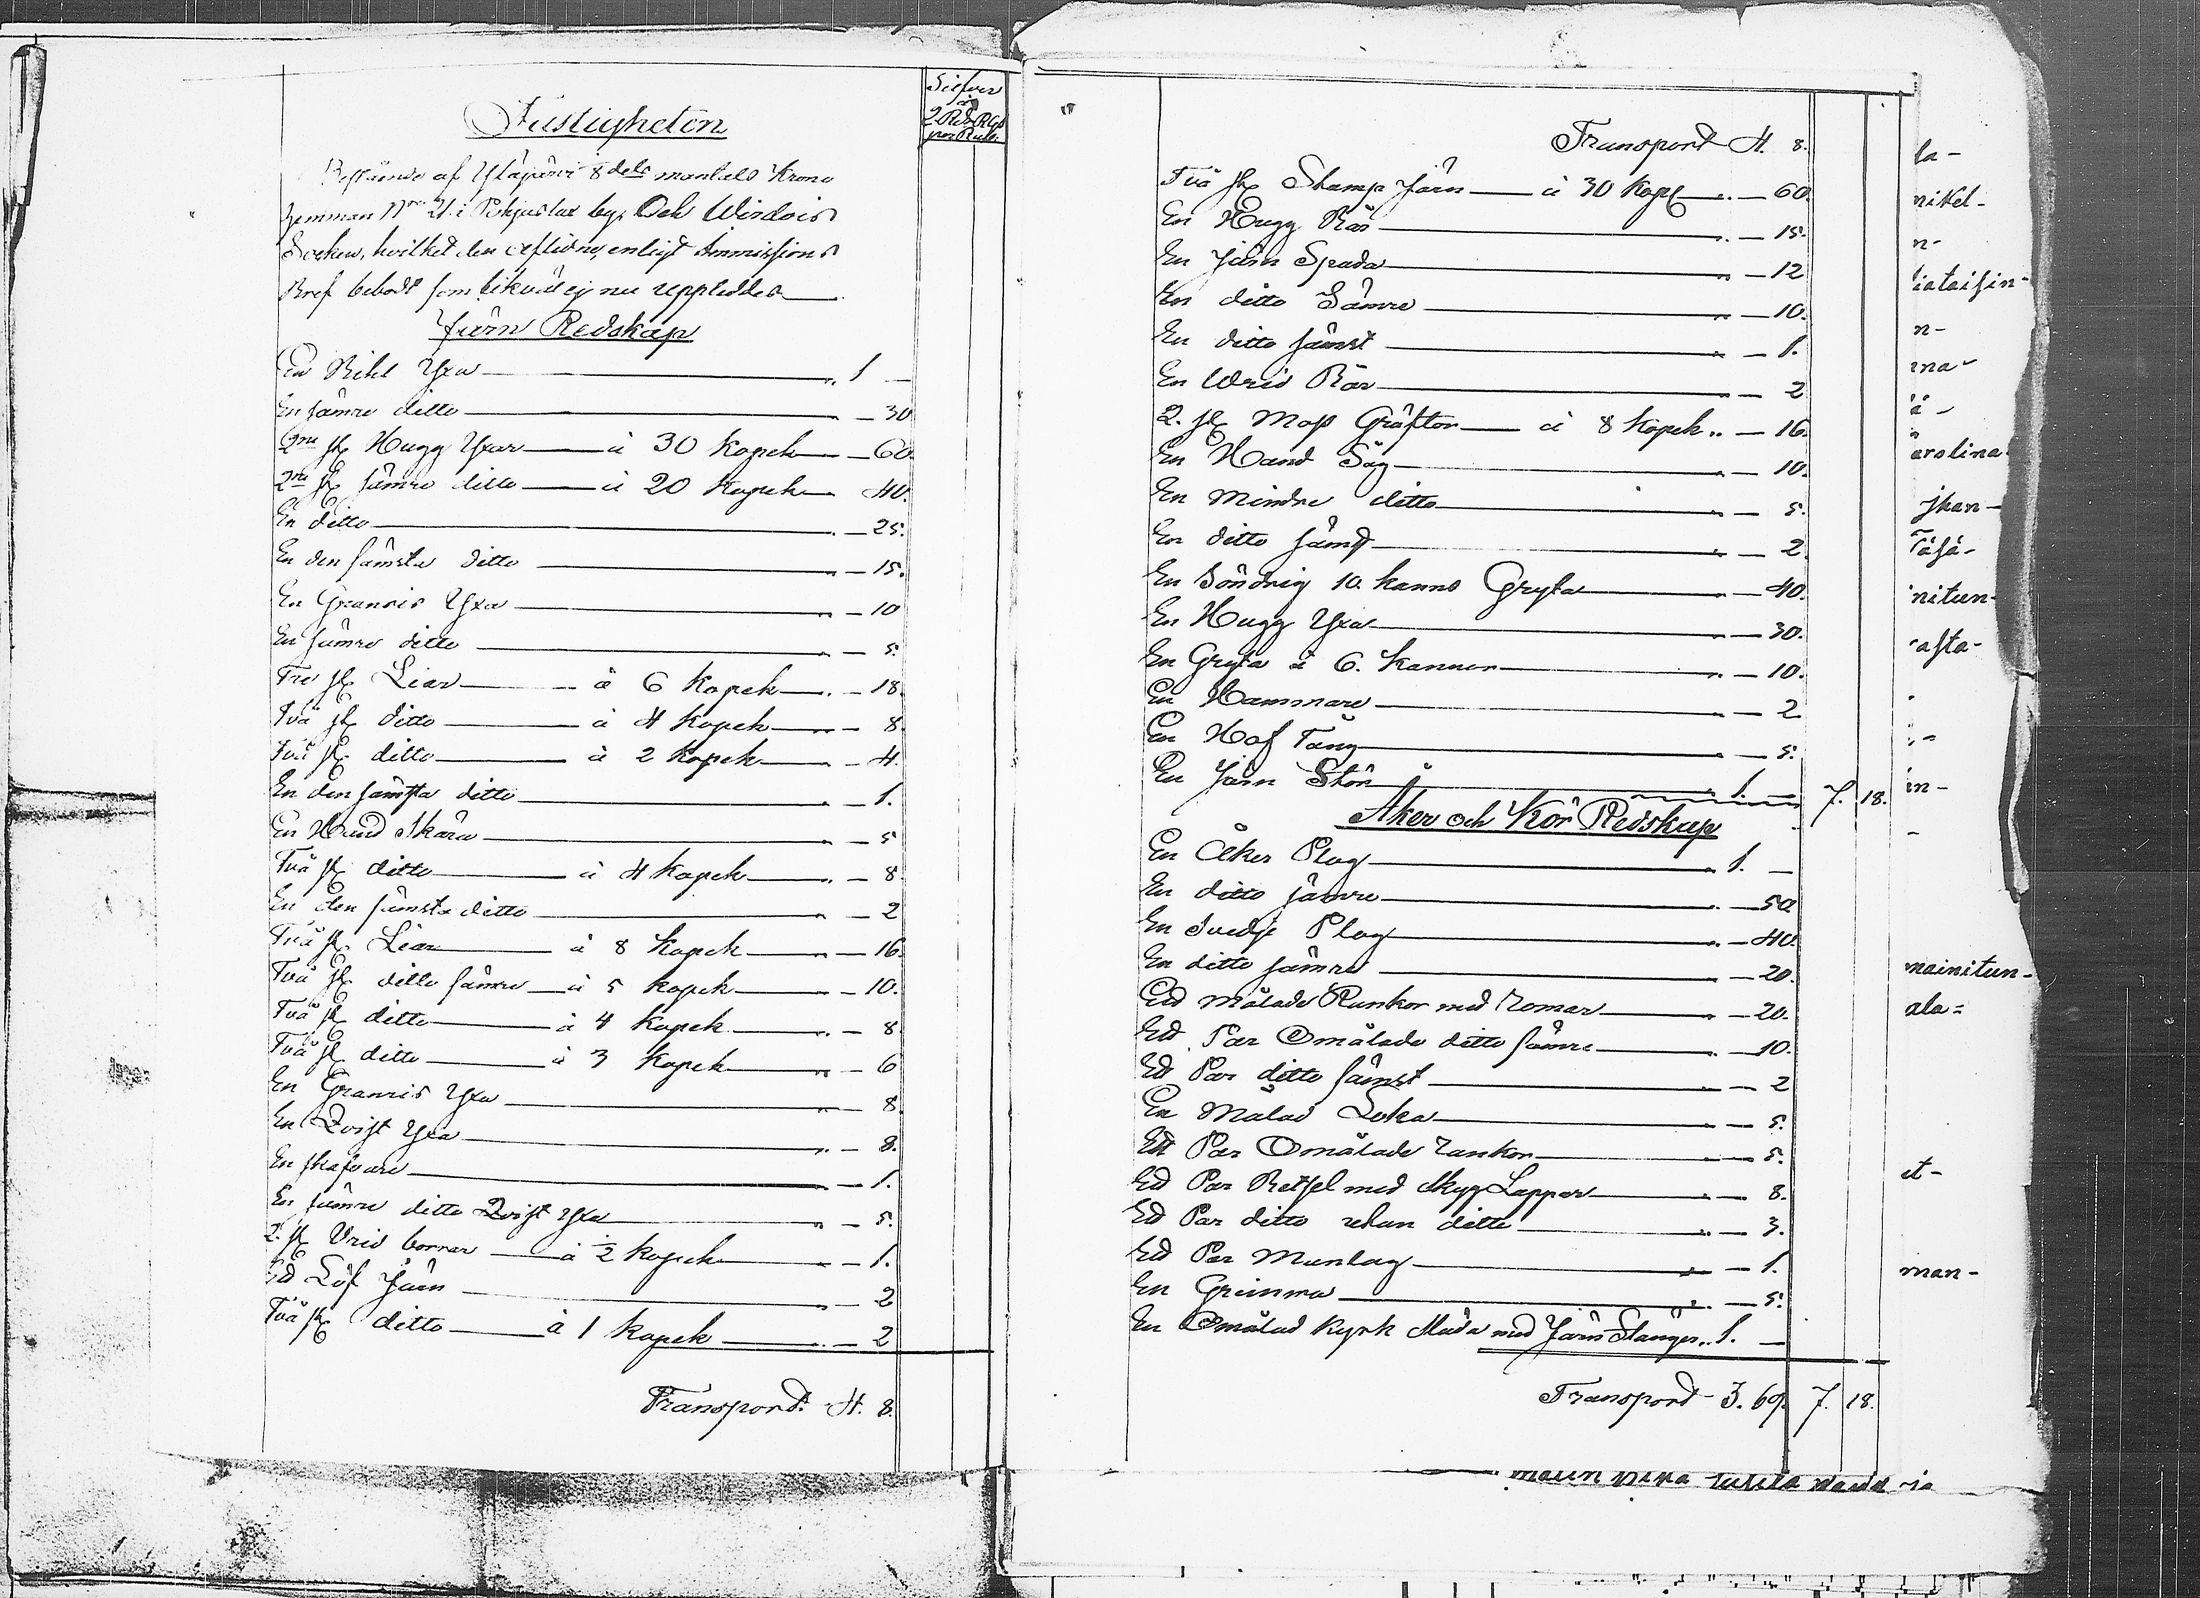 Silfver
Fastigheten
Bestående af Yläjärvi 8dels mantals Krono
hemman Nro 21 i Pohjaslax by, Och Wirdois
Socken, hvilket den aflidne, enligt Immissions
Bref bebodt som likväl ej nu uppteddes
Järn Redskap
En Bihl Yxa " 1 —
En sämre ditto " — 30
2ne st Hugg Yxar à 30 Kopek — 60.
2ne st sämre ditto à 20 Kopek 40.
En ditto " — 25.
En den sämsta ditto " — 15.
En Granris Yxa " — 10
En sämre ditto " — 5.
Tre st Liar à 6 Kopek " — 18.
Två st ditto à 4 Kopek " — 8.
Två st ditto à 2 Kopek " — 4.
En den sämsta ditto " — 1.
En Hand Skära " — 5
Två st ditto à 4 Kopek " — 8.
En den sämsta ditto " — 2
Två st Liar à 8 Kopek " — 16.
Två st ditto sämre à 5 Kopek " — 10.
Två st ditto à 4 Kopek " — 8
Två st ditto à 3 Kopek " — 6
En Granris Yxa " — 8.
En Qvist Yxa " — 8.
En skafvare " — 1.
En sämre ditto Qvist Yxa " — 5.
2. st Vrid borrar à ½ Kopek " — 1.
Ed Löf Järn " — 2
Två st ditto à 1 Kopek " — 2
Transport. 4. 8.
Transport 4. 8.
Två st Stamp Järn à 30 Kopek " — 60.
En Hugg Rär " — 15.
En Järn Spada " — 12
En ditto Sämre " — 10.
En ditto sämst " — 1.
En Wrid Rär " — 2
2. st Moss Gräftor à 8 Kopek " — 16.
En Hand Såg " — 10.
En mindre ditto " — 5.
En ditto sämst " — 2.
En Söndrig 10. kanns Gryta " — 40.
En Hugg Yxa " — 30.
En Gryta à 6. Kannor " — 10.
En Hammare " — 2
En Hof Tång " — 5.
En Järn Stör " 1. — 7. 18.
Åker och Kör Redskap
En Åker Plog " 1. —
En ditto sämre " — 50
En Svedje Plog " — 40.
En ditto sämre " — 20.
Ed målade Rankor med Romar " — 20.
Ed Par Omålade ditto sämre " — 10.
Ed Par ditto sämst " — 2
En Målad Loka " — 5.
Ett Par Omålade rankor " — 5.
Ed Par Betsel med Skyg Lappar " — 8.
Ed Par ditto utan ditto " — 3.
Ed Par Munlag " — 1.
En Grimma " — 5.
En Omålad Kyrk Släda med Järn Stänger " 1. —
Transport 3. 69. 7. 18.
la-
nikel-
n-
iataisin-
n-
na-
ä-
arolina
jkan-
nitun-
asta-
in-
mainitun-
ala=
et-
man-